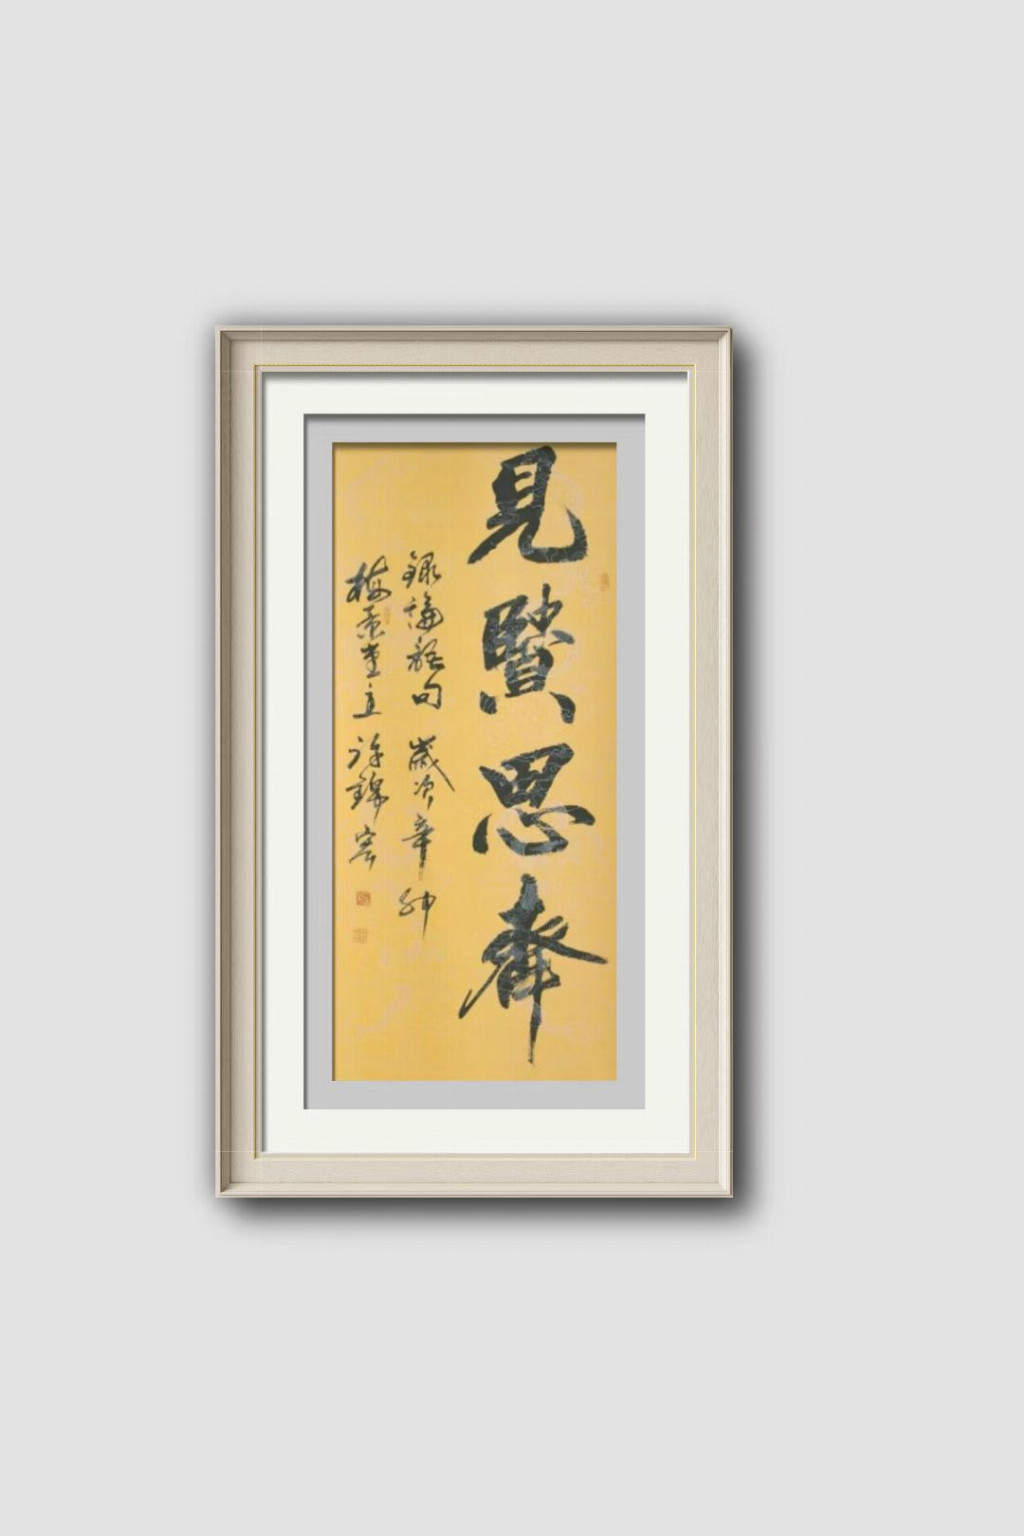 見賢思齊
錄論語句 歲次辛卯
梅景堂主 許錦宏